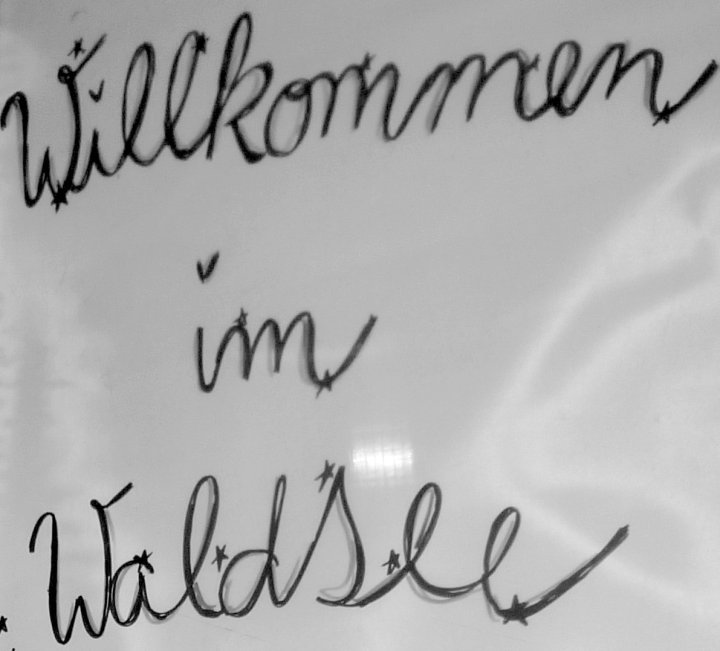 Willkommen
im
Waldsee